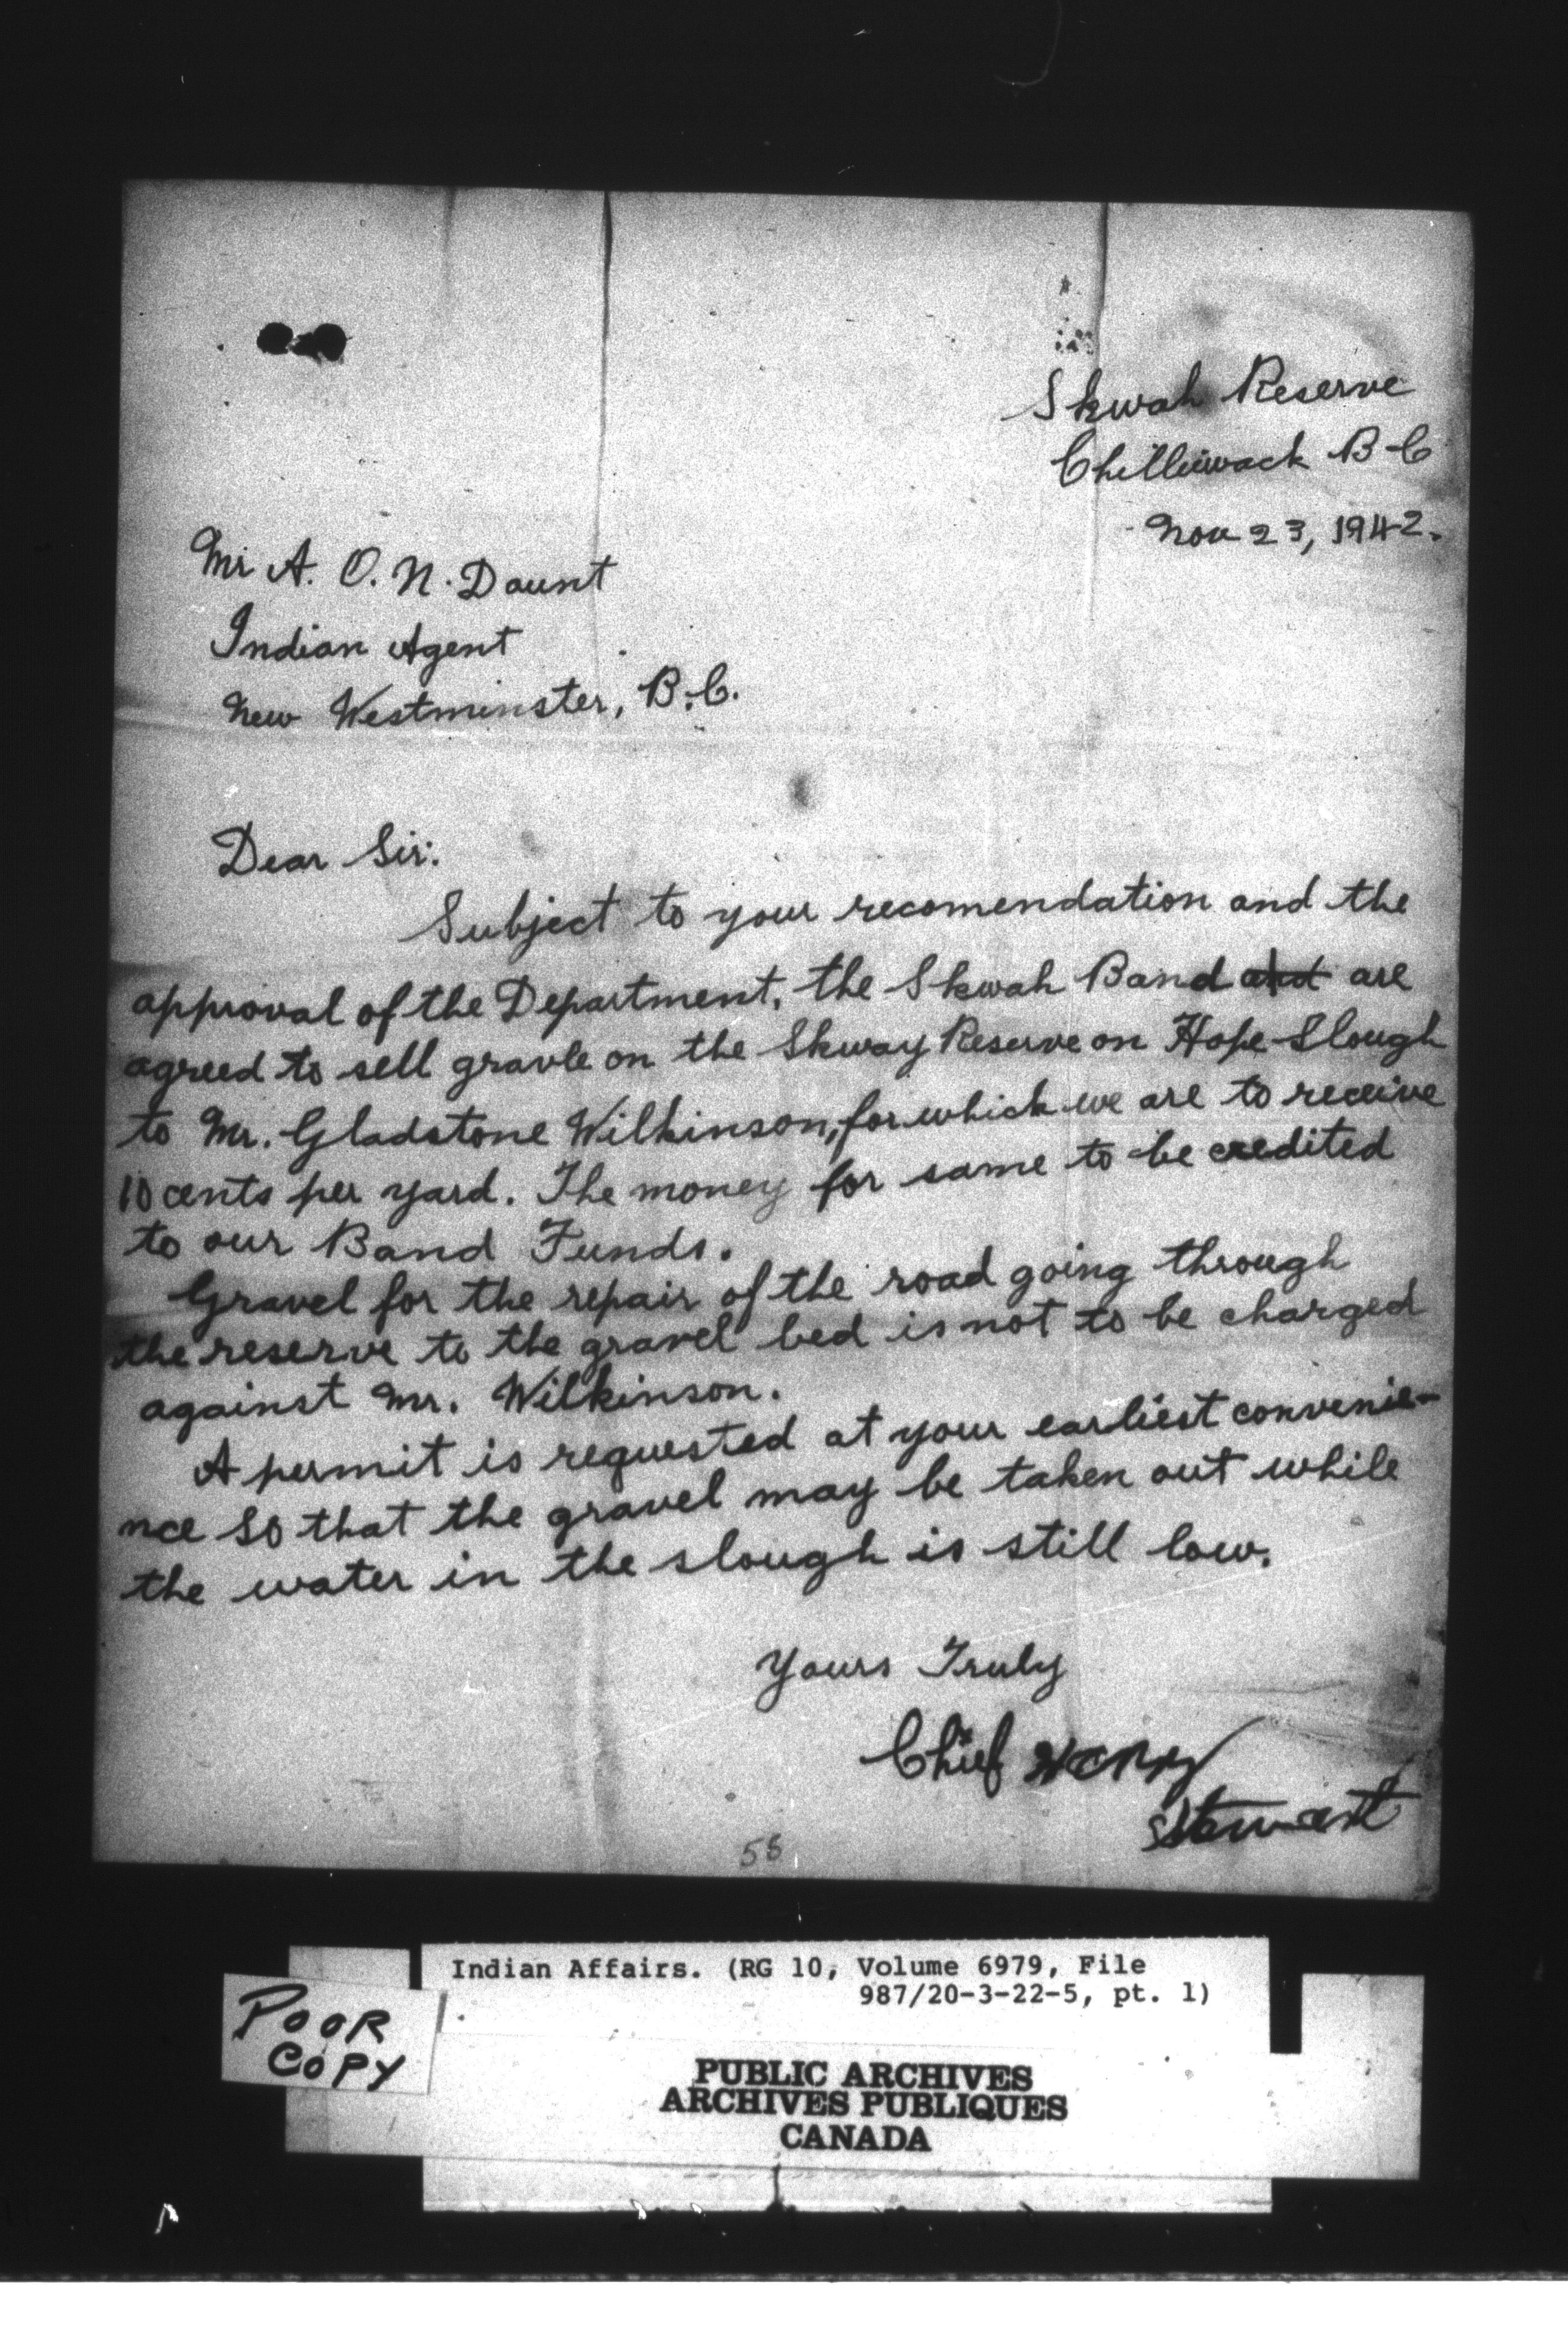 Skwah Reserve
Chilliwack B C
Nov 23, 1942.
Mr A. O. N. Daunt
Indian Agent
New Westminster, B.C.
Dear Sir:
Subject to your recomendation and the
approval of the Department, the Skwah Band and are
agreed to sell gravle on the Skway Reserve on Hope Slough
to Mr. Gladstone Wilkinson, for which we are to receive
10 cents per yard. The money for same to be credited
to our Band Funds.
Gravel for the repair of the road going through
the reserve to the gravel bed is not to be charged
against Mr. Wilkinson.
A permit is requested at your earliest convenie-
nce so that the gravel may be taken out while
the water in the slough is still low.
Yours Truly
Chief Henry
Stewart
58
Indian Affairs. (RG 10, Volume 6979, File
987/20-3-22-5, pt. 1)
POOR
COPY
PUBLIC ARCHIVES
ARCHIVES PUBLIQUES
CANADA